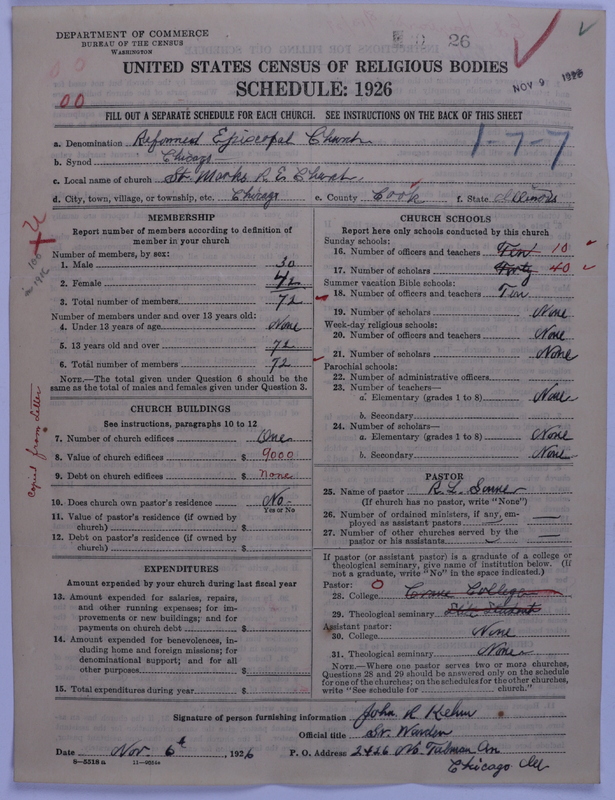 DEPARTMENT OF COMMERCE
BUREAU OF THE CENSUS
WASHINGTON
26
NOV 9 1926
UNITED STATES CENSUS OF RELIGIOUS BODIES
SCHEDULE: 1926
00
FILL OUT A SEPARATE SCHEDULE FOR EACH CHURCH. SEE INSTRUCTIONS ON THE BACK OF THIS SHEET
1-7-7
a. Denomination Reformed Episcopal Church
b. Synod Chicago
c. Local name of church St. Marks R E Church
d. City, town, village, or township, etc. Chicago e. County Cook f. State Illinois
MEMBERSHIP
Report number of members according to definition of
member in your church
Number of members, by sex:
1. Male 30
2. Female 42
3. Total number of members 72
Number of members under and over 13 years old:
4. Under 13 years of age None
5. 13 years old and over 72
6. Total number of members 72
NOTE.—The total given under Question 6 should be the
same as the total of males and females given under Question 3.
CHURCH BUILDINGS
See instructions, paragraphs 10 to 12
7. Number of church edifices One
8. Value of church edifices $ 9000
9. Debt on church edifices $ none
copied from letter
10. Does church own pastor's residence No
Yes or No
11. Value of pastor's residence (if owned by
church) $
12. Debt on pastor's residence (if owned by
church) $
EXPENDITURES
Amount expended by your church during last fiscal year
13. Amount expended for salaries, repairs,
and other running expenses; for im-
provements or new buildings; and for
payments on church debt $
14. Amount expended for benevolences, in-
cluding home and foreign missions; for
denominational support; and for all
other purposes $
15. Total expenditures during year $
CHURCH SCHOOLS
Report here only schools conducted by this church
Sunday schools:
16. Number of officers and teachers Ten 10
17. Number of scholars Forty 40
Summer vacation Bible schools:
18. Number of officers and teachers Ten
19. Number of scholars None
Week-day religious schools:
20. Number of officers and teachers None
21. Number of scholars None
Parochial schools:
22. Number of administrative officers
23. Number of teachers—
a. Elementary (grades 1 to 8) None
b. Secondary
24. Number of scholars—
a. Elementary (grades 1 to 8) None
b. Secondary None
PASTOR
25. Name of pastor R. L.
(If church has no pastor, write "None")
26. Number of ordained ministers, if any, em-
ployed as assistant pastors —
27. Number of other churches served by the
pastor or his assistants —
If pastor (or assistant pastor) is a graduate of a college or
theological seminary, give name of institution below. (If
not a graduate, write "No" in the space indicated.)
Pastor: O
28. College Crane College
29. Theological seminary Student
Assistant pastor:
30. College None
31. Theological seminary None
NOTE.—Where one pastor serves two or more churches,
Questions 28 and 29 should be answered only on the schedule
for one of the churches; on the schedules for the other churches,
write "See schedule for church."
Signature of person furnishing information John R Kehm
Official title Sr. Warden
Date Nov. 6th, 1926 P. O. Address 2426 No. Talman Av
Chicago Ill
8—5518 a 11—9654